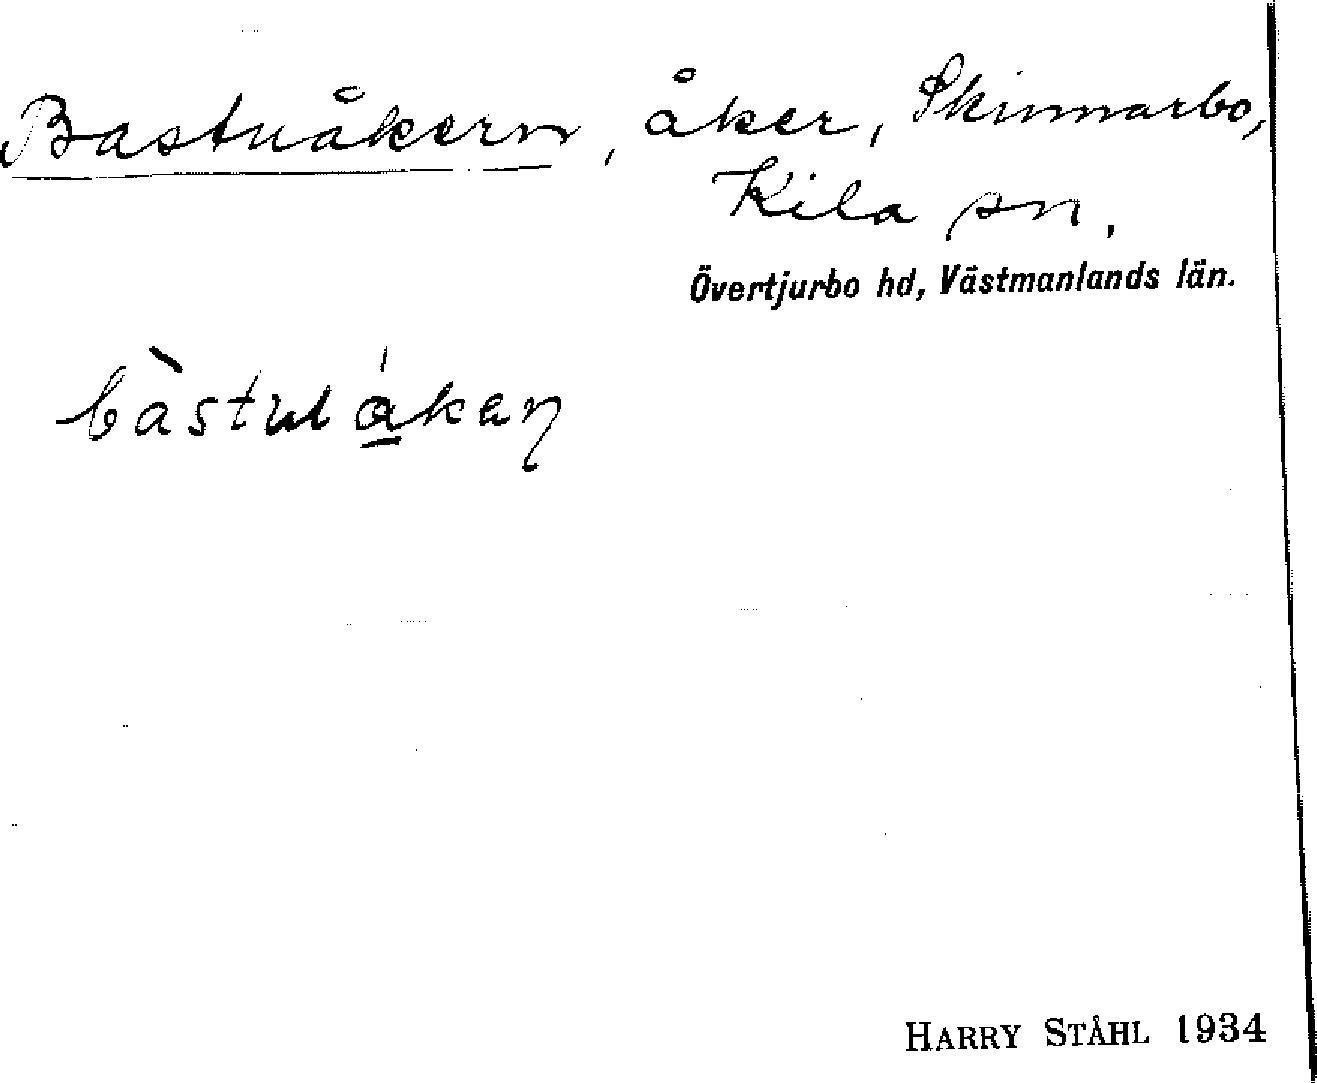 Bastuåkern, åker, Skinnarbo,
Kila sn.
Övertjurbo hd, Västmanlands län.
HARRY STÅHL 1934